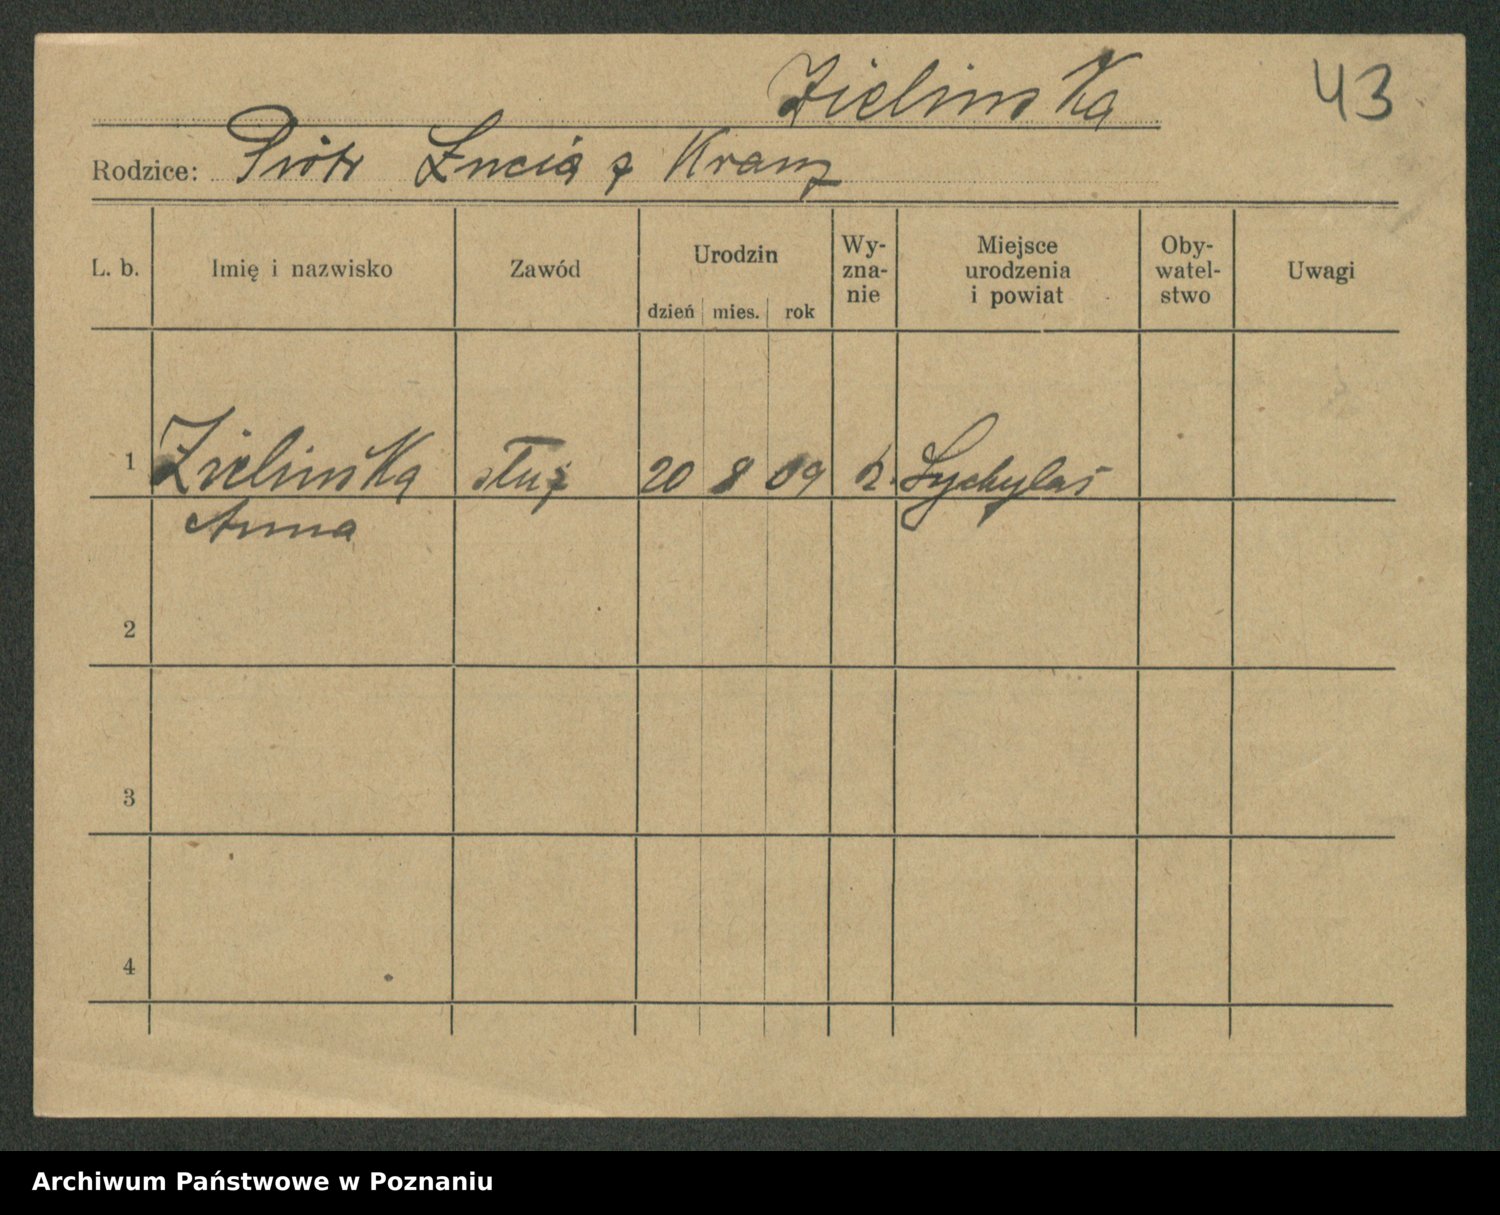 Zielinska 43
Rodzice: Piotr Łucia z Kranz
L. b. Imię i nazwisko Zawód Urodzin Wy- Miejsce Oby- Uwagi
zna- urodzenia watel-
dzień mies. rok nie i powiat stwo
1 Zielinska służ 20 8 09 k.
Anna
2
3
4
Archiwum Państwowe w Poznaniu